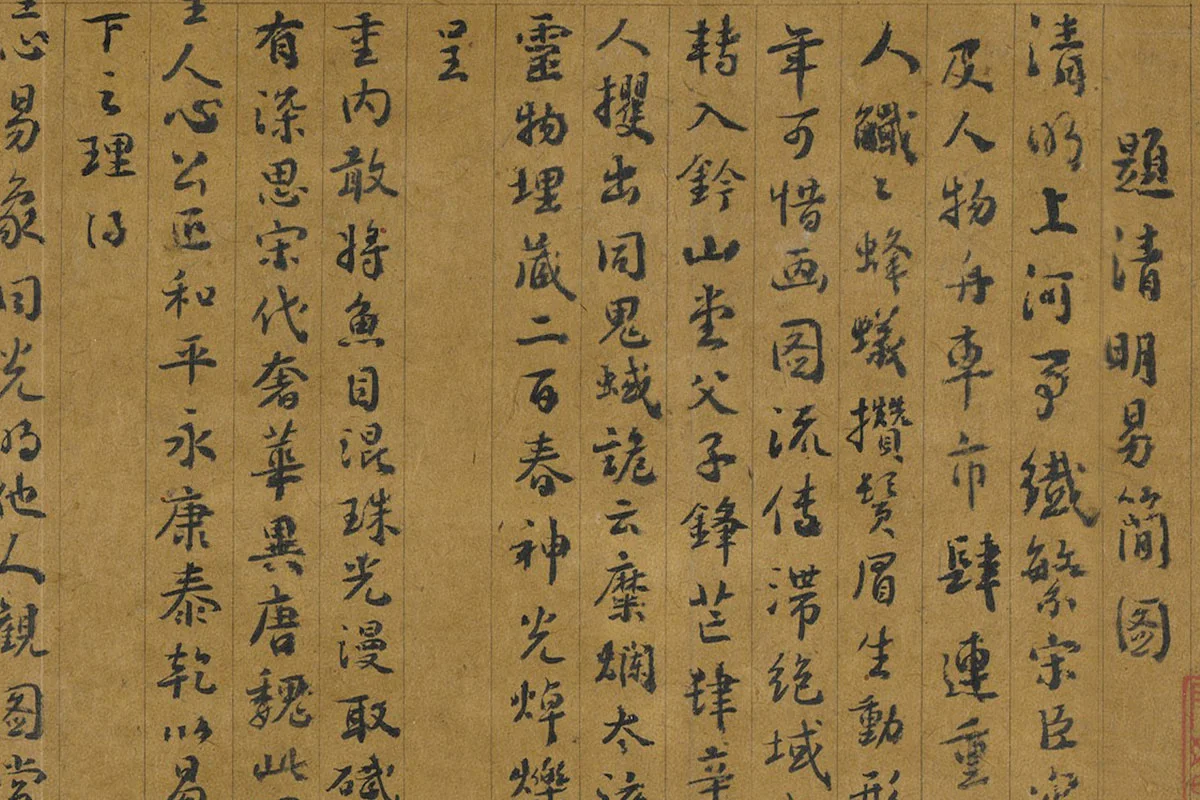 題清明易簡圖
清明上河事纖繁宋臣
及人物舟車市肆連重
人䘌〻蜂蟻攢鬚眉生動形
年可惜画图流傳滞絶域
轉入鈐山堂父子鋒芒肆辛
人攫出同鬼蜮詭云糜爛
靈物埋藏二百春神光焯爍
呈
重内敢將魚目混珠光漫取碔
有深思宋代奢華異唐魏此
人心公正和平永康泰乾以易
下之理得
心易象同光为他人觀图